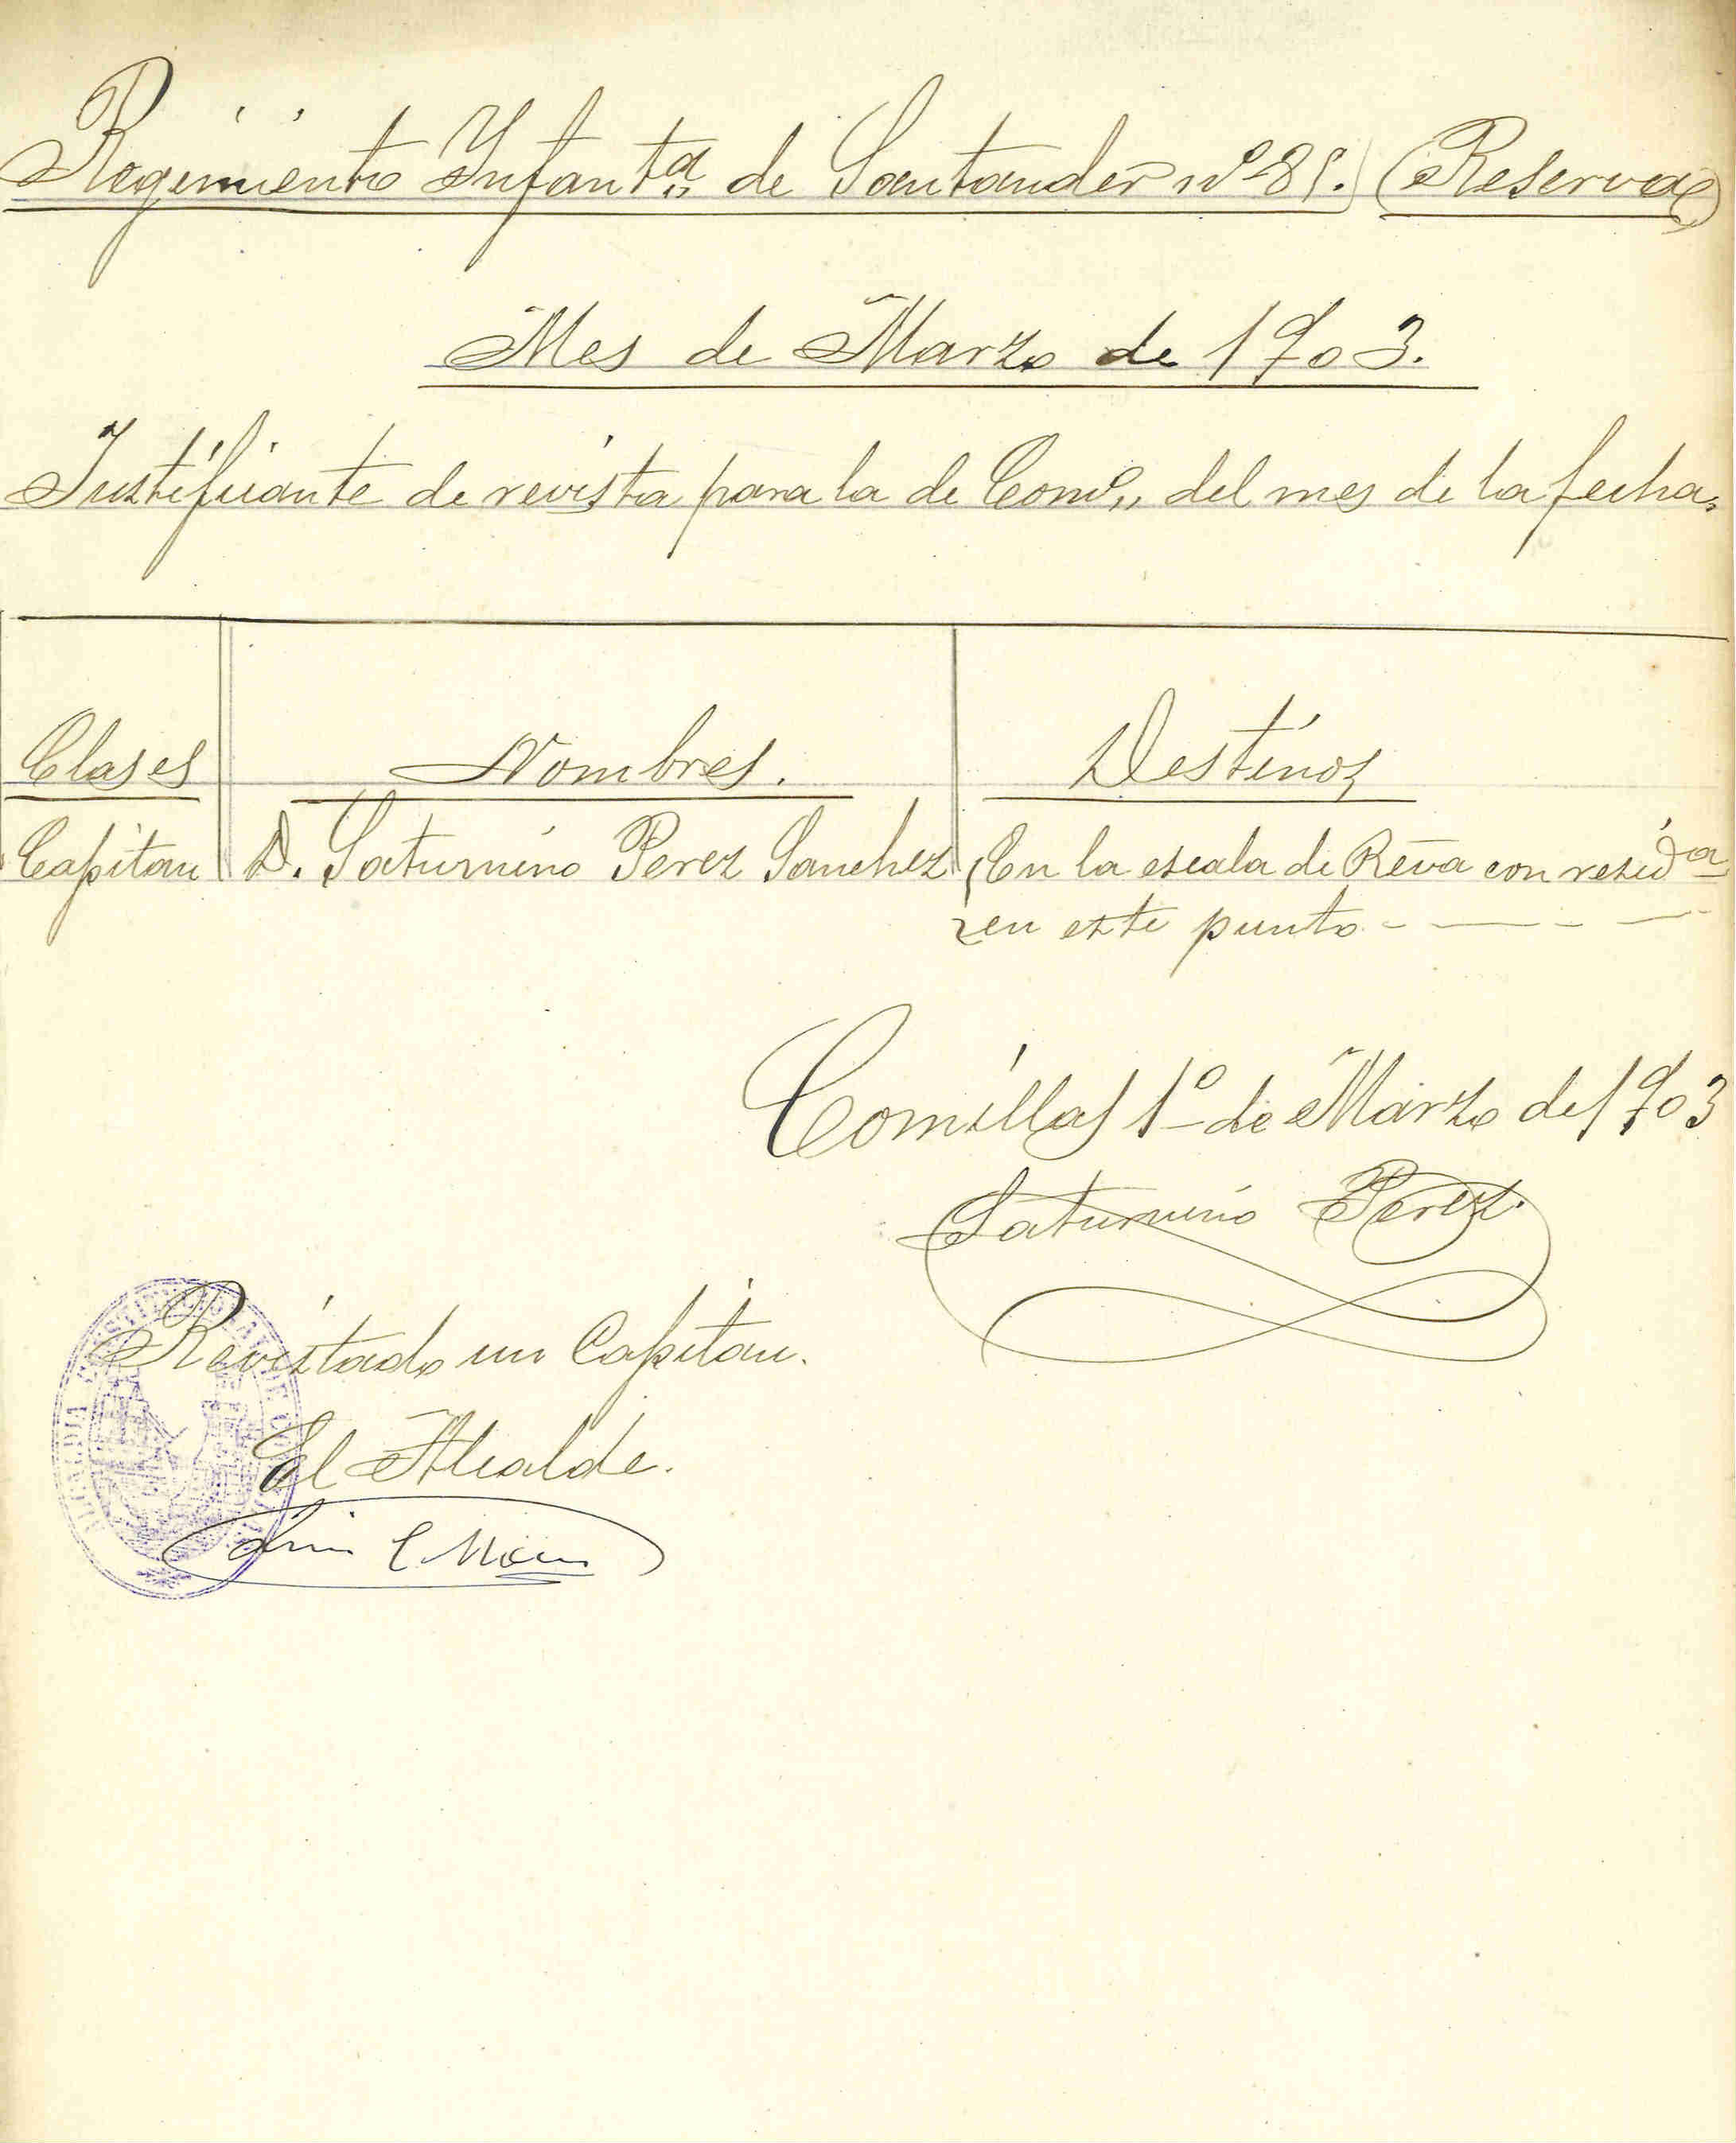 Regimiento Infantª de Santander nº 85. (Reserva)
Mes de Marzo de 1903.
Justificante de revista para la de Comº,, del mes de la fecha.
Clases Nombres. Destinos
Capitan D. Saturnino Perez Sanchez En la escala de Rēva con residª
en este punto
Comillas 1º de Marzo de 1903
Saturnino Perez.
Revistado un Capitan.
El Alcalde.
ALCALDIA CONSTITUCIONAL DE